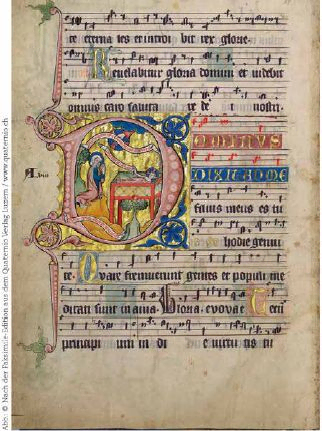 te eterna les et introi bit rex glorie.
Revelabitur gloria domini et videbit
omnis caro saluta re de nostri.
DOMINUS
DIXIT AD ME
filius meus es tu
hodie genui
te. Quare fremuerunt gentes et populi me
ditati sunt inania. Gloria. evovae Tecū
principi um in di e virtu tis tu
Abb. © Nach der Faksimile-Edition aus dem Quaternio Verlag Luzern / www.quaternio.ch